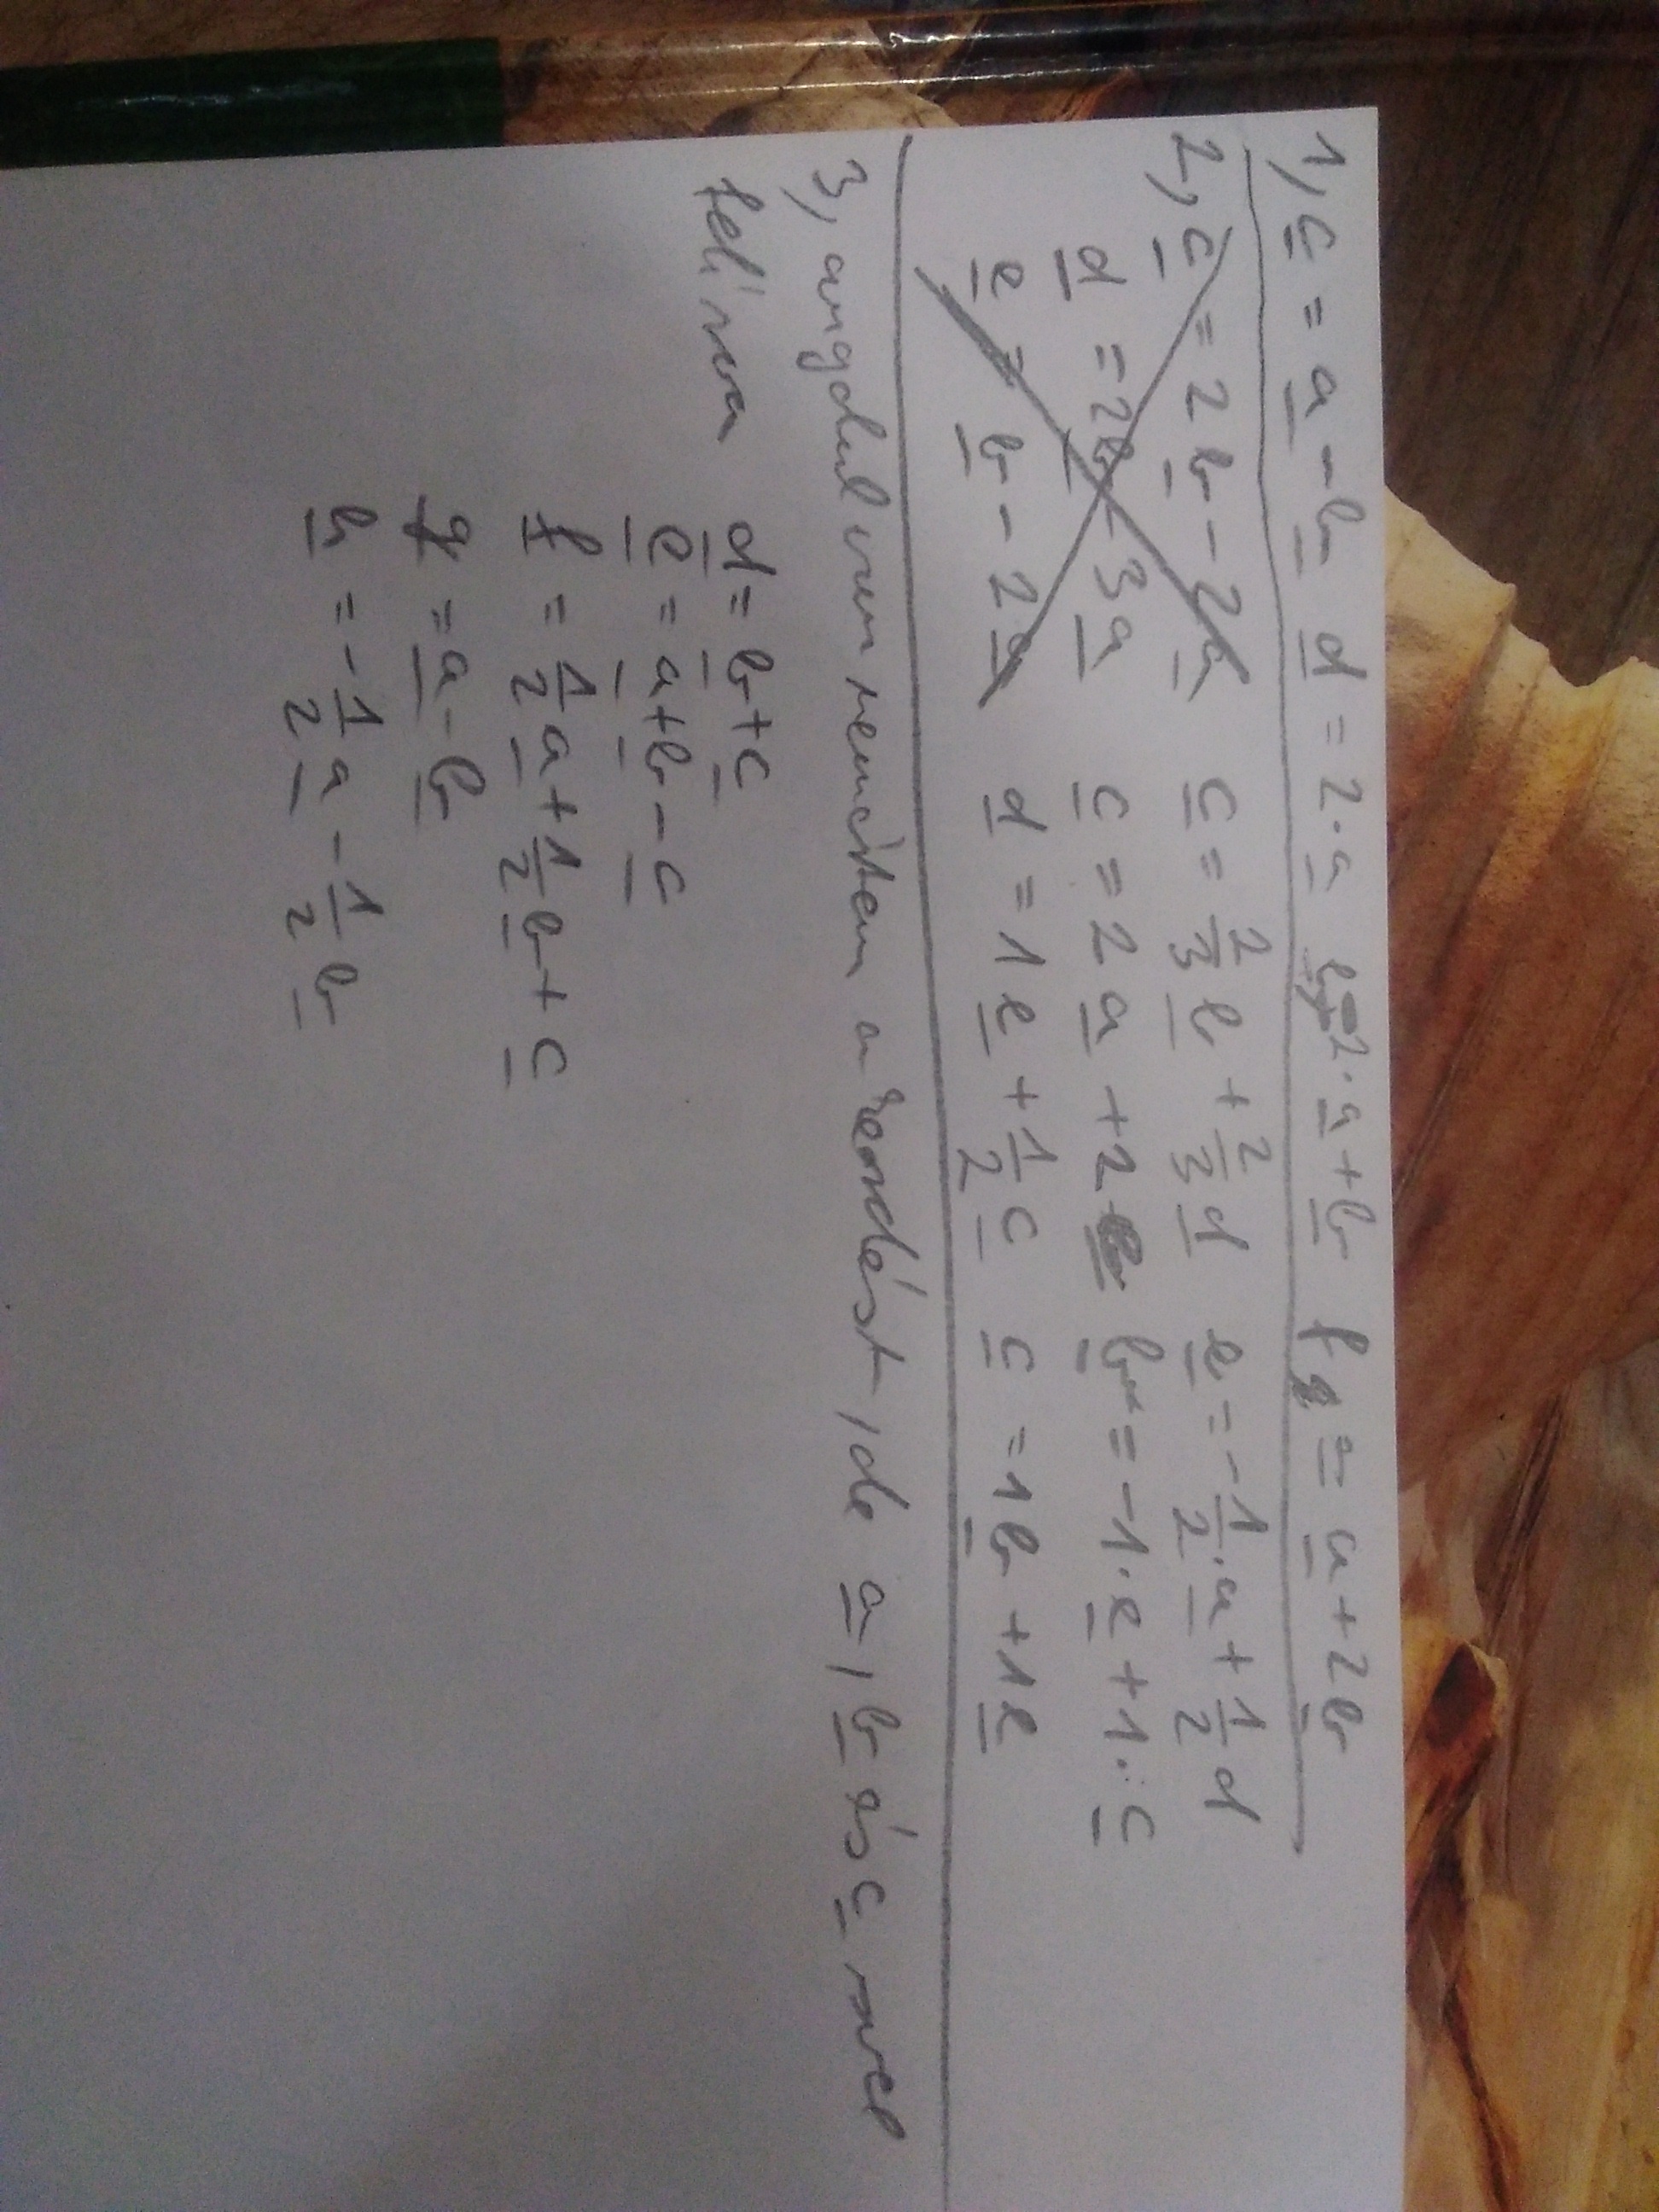 1, c = a - b d = 2·a e = 2·a + b f = a + 2b
2, c = 2b - 2a c = 2/3 b + 2/3 d e = -1/2·a + 1/2 d
d = 2b - 3a c = 2a + 2 e b = -1·e + 1·c
e = b - 2a d = 1e + 1/2 c c = 1b + 1e
3, angolul van nem értem a kérdést, de a, b és c vel
felírva
d = b + c
e = a + b - c
f = 1/2 a + 1/2 b + c
g = a - b
h = -1/2 a - 1/2 b